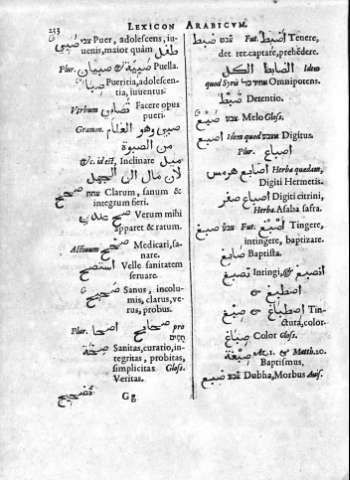 223
LEXICON ARABICVM.
صبي Puer, adolescens, iu-
uenis, maior quàm طفل
Plur. صبيان & صبية Puella.
صبا Pueritia, adolescen-
tia, iuuentus.
Verbum تصابى Facere opus
pueri.
Gramm. صبى وهو الغلام
من الصبوة
&c. id est, Inclinare ميل
لان مال الى الجهل
صحيح Clarum, sanum &
integrum fieri.
صح عندي Verum mihi
apparet & ratum.
Medicari, sa-
nare.
استصح Velle sanitatem
seruare.
صحيح Sanus, incolu-
mis, clarus, ve-
rus, probus.
Plur. اصحا صحايح pro
صحة Sanitas, curatio, in-
tegritas, probitas,
simplicitas Gloss.
Veritas.
Gg
تصحيح
ضبط Fut. اضبط Tenere,
det. recaptare, prehēdere.
الضابط الكل Idem
quod Syris Omnipotens.
ضبط Detentio.
Melo Gloss.
اصبع Idem quod Digitus.
Plur. اصابع
اصابع هرمس Herba quædam,
Digiti Hermetis.
اصابع صفر Digiti citrini,
Herba Asaba safra.
صبغ Fut. اصبغ Tingere,
intingere, baptizare.
صابغ Baptista.
تصبغ & انصبغ Intingi,
& اصطبغ
صبغ & اصطباغ Tin-
ctura, color.
صباغ Color Gloss.
صبغة Act. 1. & Matth. 20.
Baptismus,
Dubha, Morbus Auis.